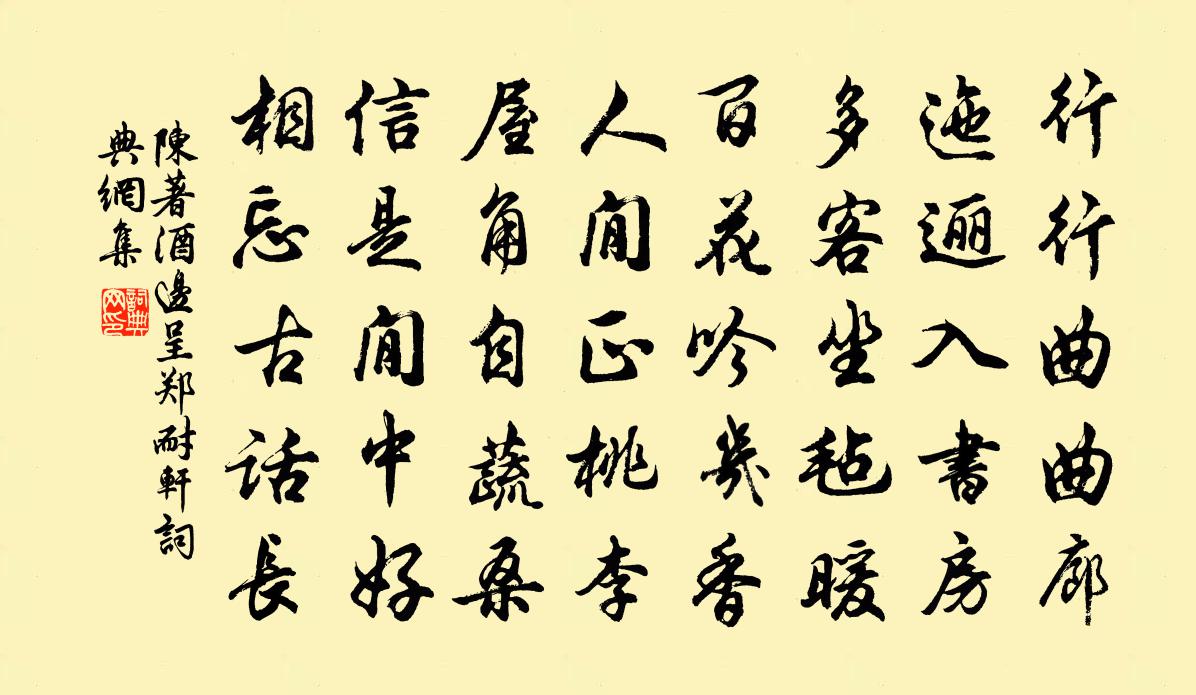 行行曲曲廊
迤逦入書房
多客坐毡暖
百花吟幾香
人間正桃李
屋角自蔬桑
信是閒中好
相忘古話長
陳著酒邊呈郑耐軒詞
典網集
詞典
网印